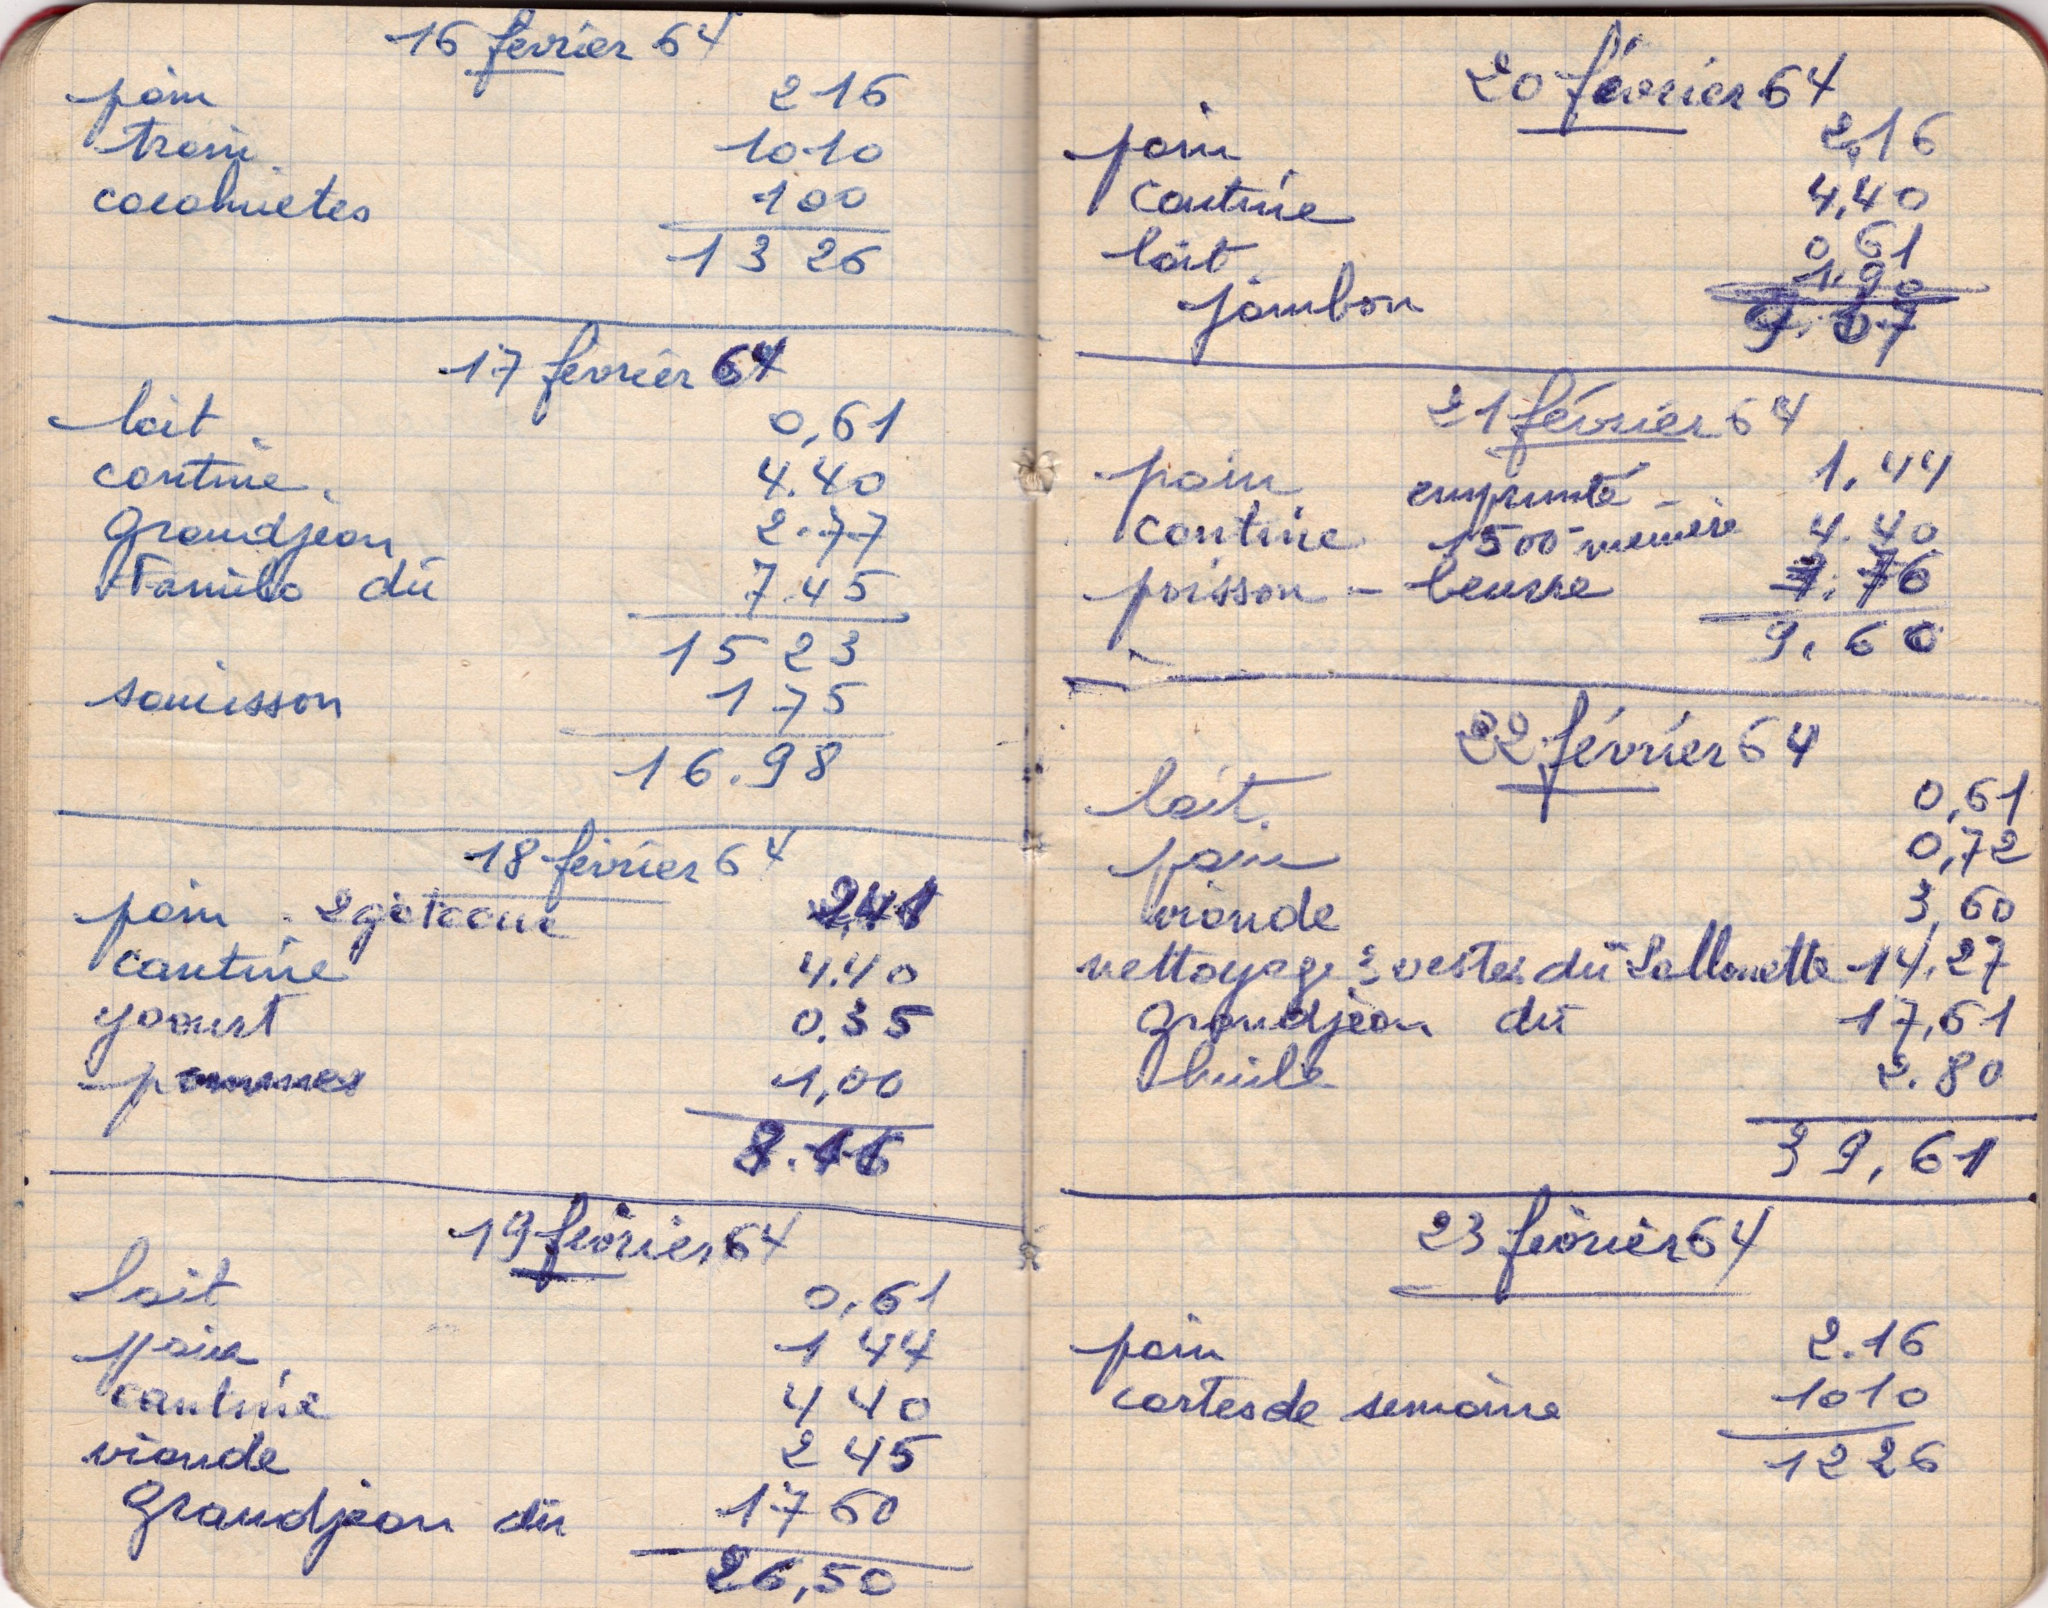 16 février 64
pain 216
train 1010
cacahuetes 100
13 26
17 février 64
lait 0,61
cantine 4.40
grandjean 2.77
Familo dû 7.45
15 23
saucisson 175
16.98
18 février 64
pain - 2 gateaux 2,41
cantine 4.40
yaourt 0.35
pommes 1,00
8.16
19 février 64
lait 0,61
pain 1 44
cantine 4 40
viande 2 45
grandjean du 17 60
26,50
20 février 64
pain 2,16
cantine 4,40
lait 0,61
jambon 1.90
9.07
21 février 64
pain 1,44
emprunté -
cantine 1500 - mémère 4.40
poisson - beurre 3.76
9,60
22 février 64
lait 0,61
pain 0,72
viande 3,60
nettoyage 2 vestes dû 14,27
grandjean dû 17,61
huile 2.80
39,61
23 février 64
pain 2.16
cartes de semaine 1010
1226